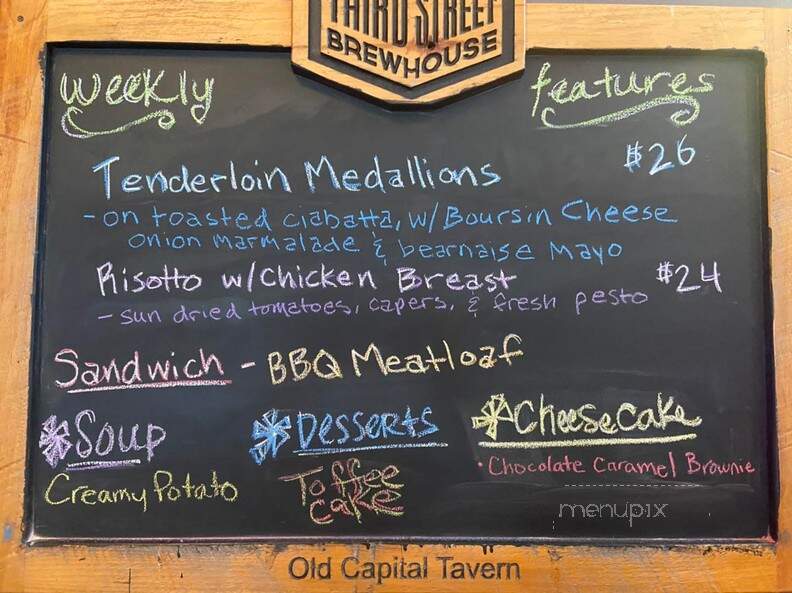 THIRD STREET
BREWHOUSE
Weekly features
Tenderloin Medallions $26
- on toasted ciabatta, w/Boursin Cheese
onion marmalade & bearnaise Mayo
Risotto w/Chicken Breast $24
- sun dried tomatoes, capers, & fresh pesto
Sandwich - BBQ Meatloaf
Soup
Creamy Potato
Desserts
Toffee
cake
Cheesecake
· Chocolate Caramel Brownie
menupix
Old Capital Tavern